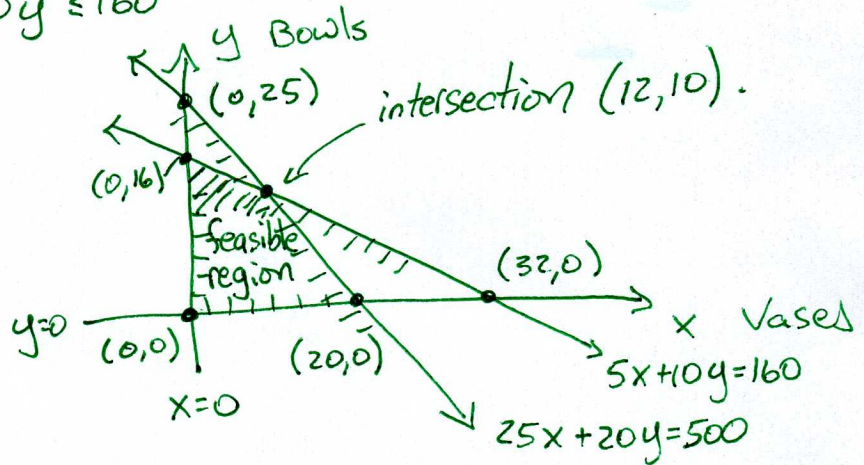 y ≤ 160
y Bowls
(0,25)
intersection (12,10).
(0,16)
feasible
region
(32,0)
y=0
(0,0)
(20,0)
x Vases
x=0
5x+10y=160
25x+20y=500